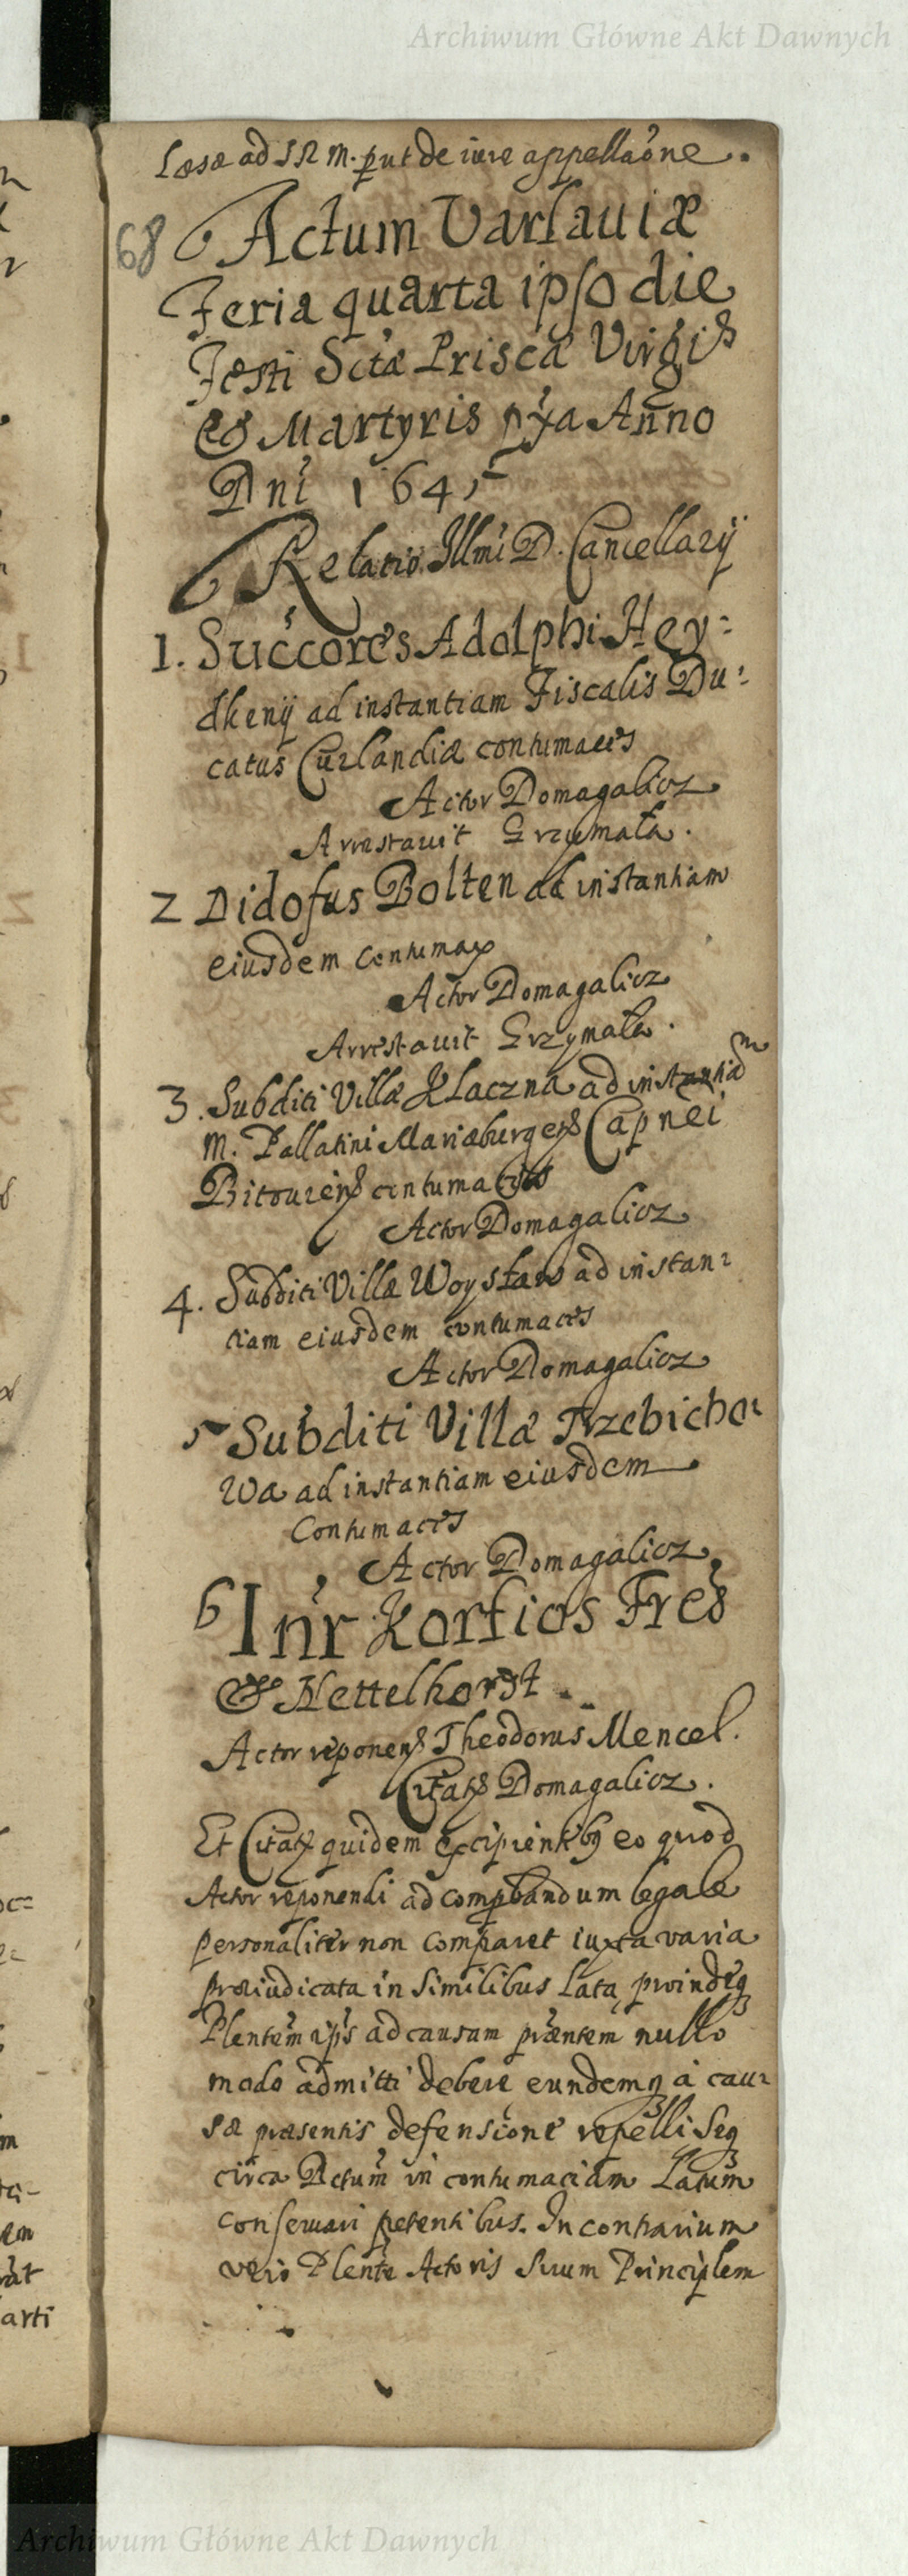 Archiwum Główne Akt Dawnych
Læsæ ad S R M. put de iure appellaōne.
68
Actum Varsauiæ
Feria quarta ipso die
Festi Sctæ Priscæ Virgis
& Martyris pxa Anno
Dni 1645
Relatio Illmi D. Cancellarij
1. Succores Adolphi Hey:
dkenij ad instantiam Fiscalis Du:
catus Curlandiæ contumaces
Actor Domagalicz
Arrestauit Grzymała.
2 Didofus Bolten ad instantiam
eiusdem contumax
Actor Domagalicz
Arrestauit Grzymała.
3. Subditi Villæ Klaczna ad instantiam
M. Pallatini Mariæburgens Capnei
Bitouiens contumaces
Actor Domagalicz
4. Subditi Villæ Woysław ad instan:
tiam eiusdem contumaces
Actor Domagalicz
5 Subditi Villæ Trzebicho:
wa ad instantiam eiusdem
Contumaces
Actor Domagalicz
6 Inr Korfios Fres
& Nettelhorst
Actor reponens Theodorus Mencel.
Citats Domagalicz.
Et Citatis quidem excipientibq eo quod
Actor reponendi ad compbandum legale
personaliter non comparet iuxta varia
præiudicata in similibus lata, proindeq
Plentem ips ad causam præntem nullo
modo admitti debere eundemq à cau:
sæ præsentis defensione repelli seq
circa Actum in contumaciam Latum
conseruari petentibus. In contrarium
vero Plente Actoris suum Principlem
Archiwum Główne Akt Dawnych